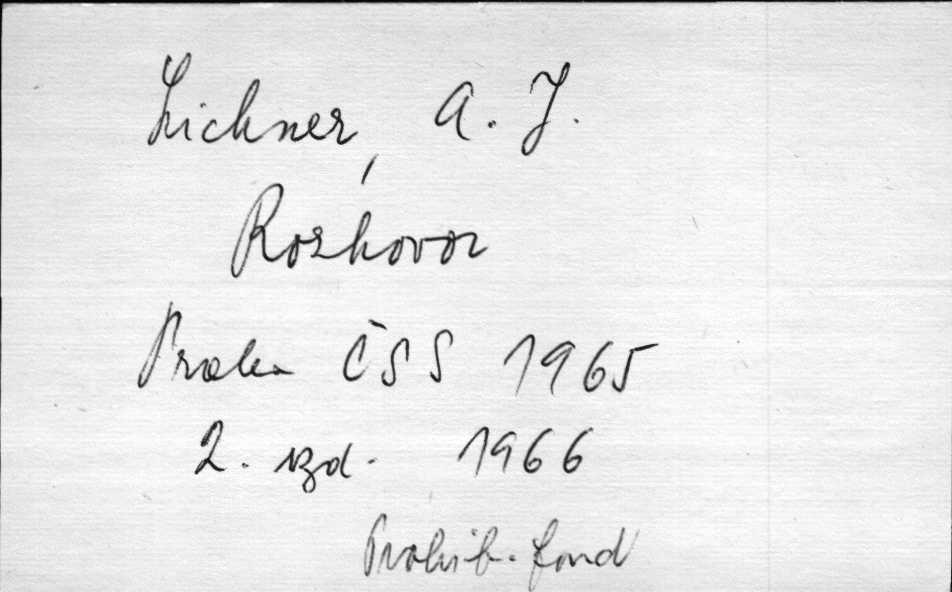 Lichner, A. J.
Rozhovor
Praha ČSS 1965
2. vyd. 1966
Prohib. fond